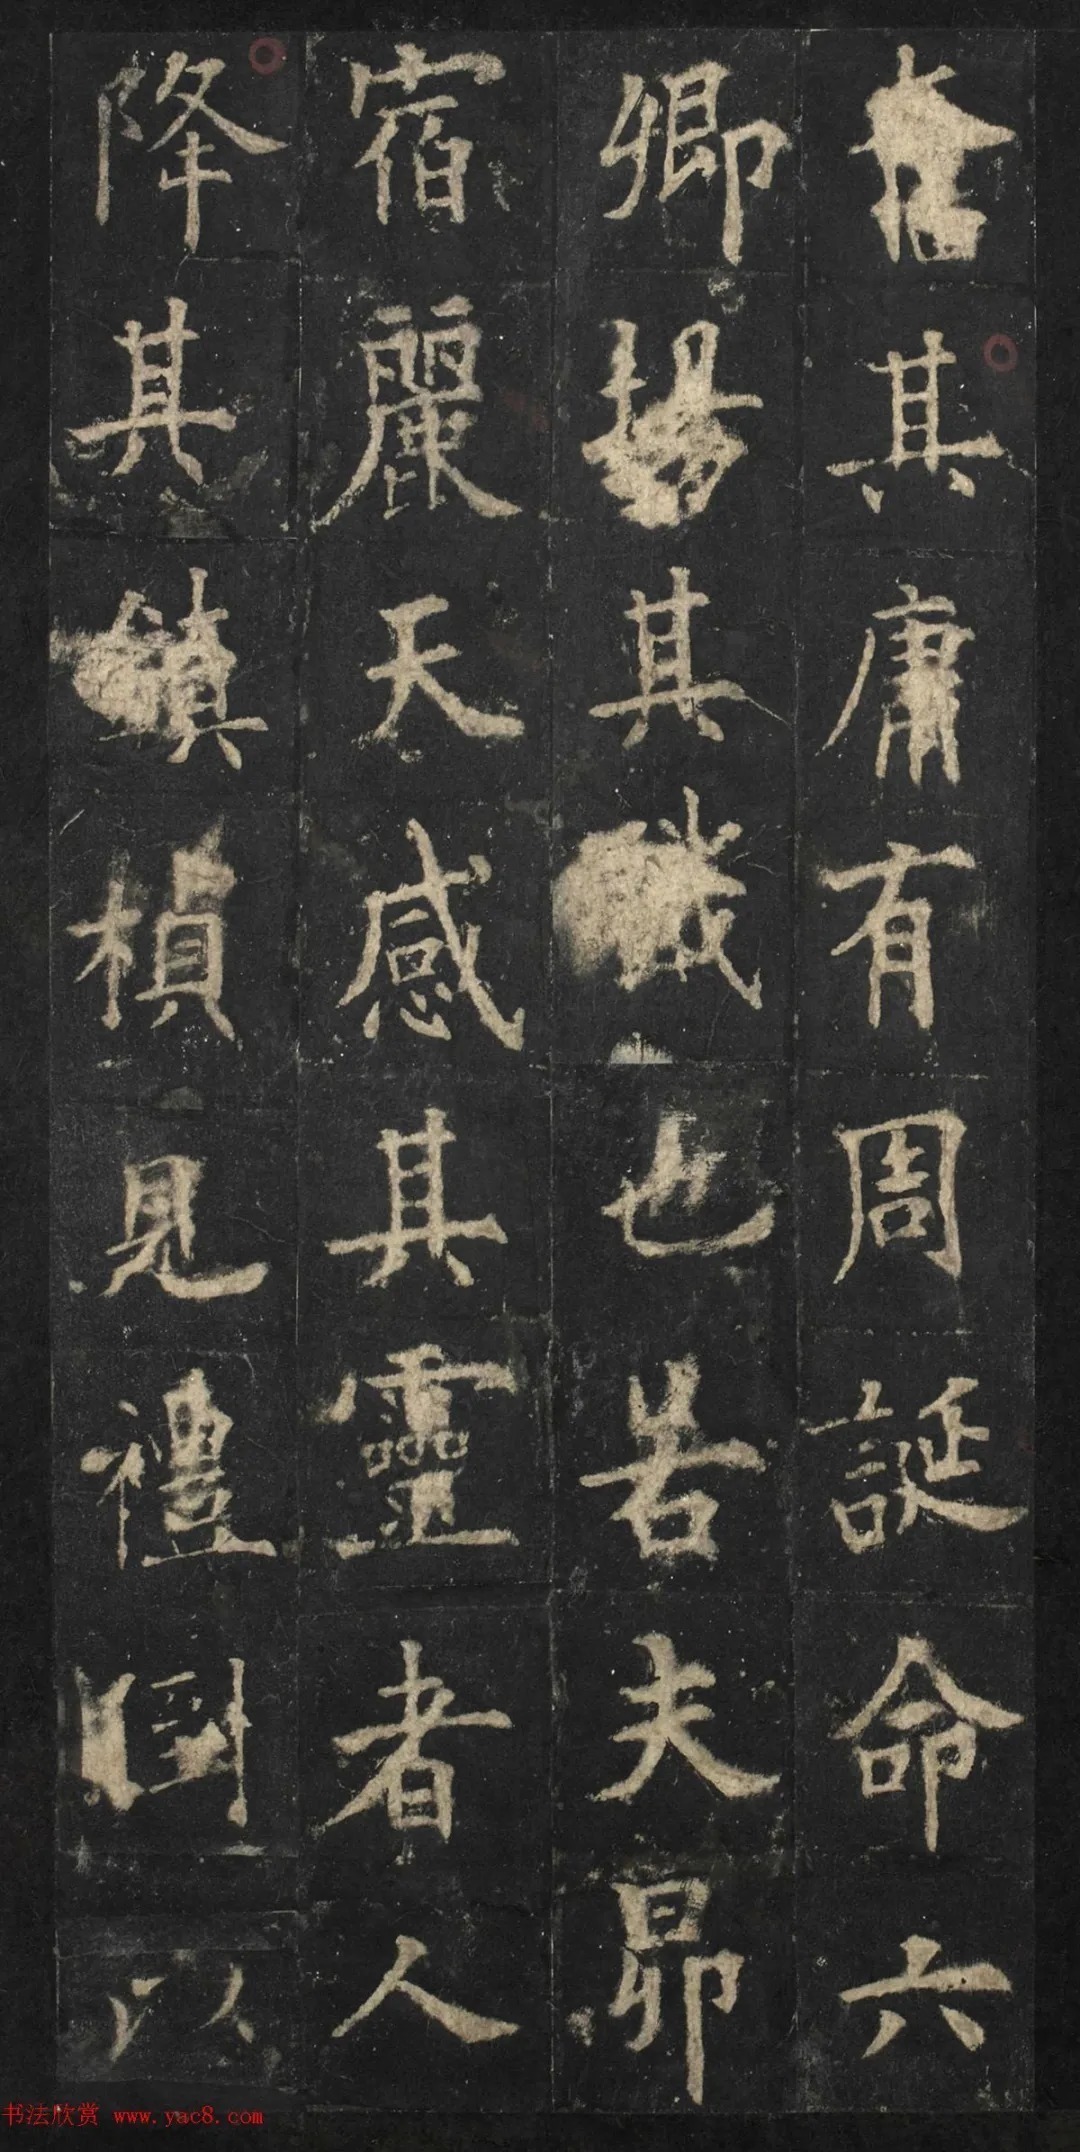 其庸有周誕命六
卿揚其職也若夫昴
宿麗天感其靈者人
降其鎮楨見禮以
書法欣赏 www.yac8.com